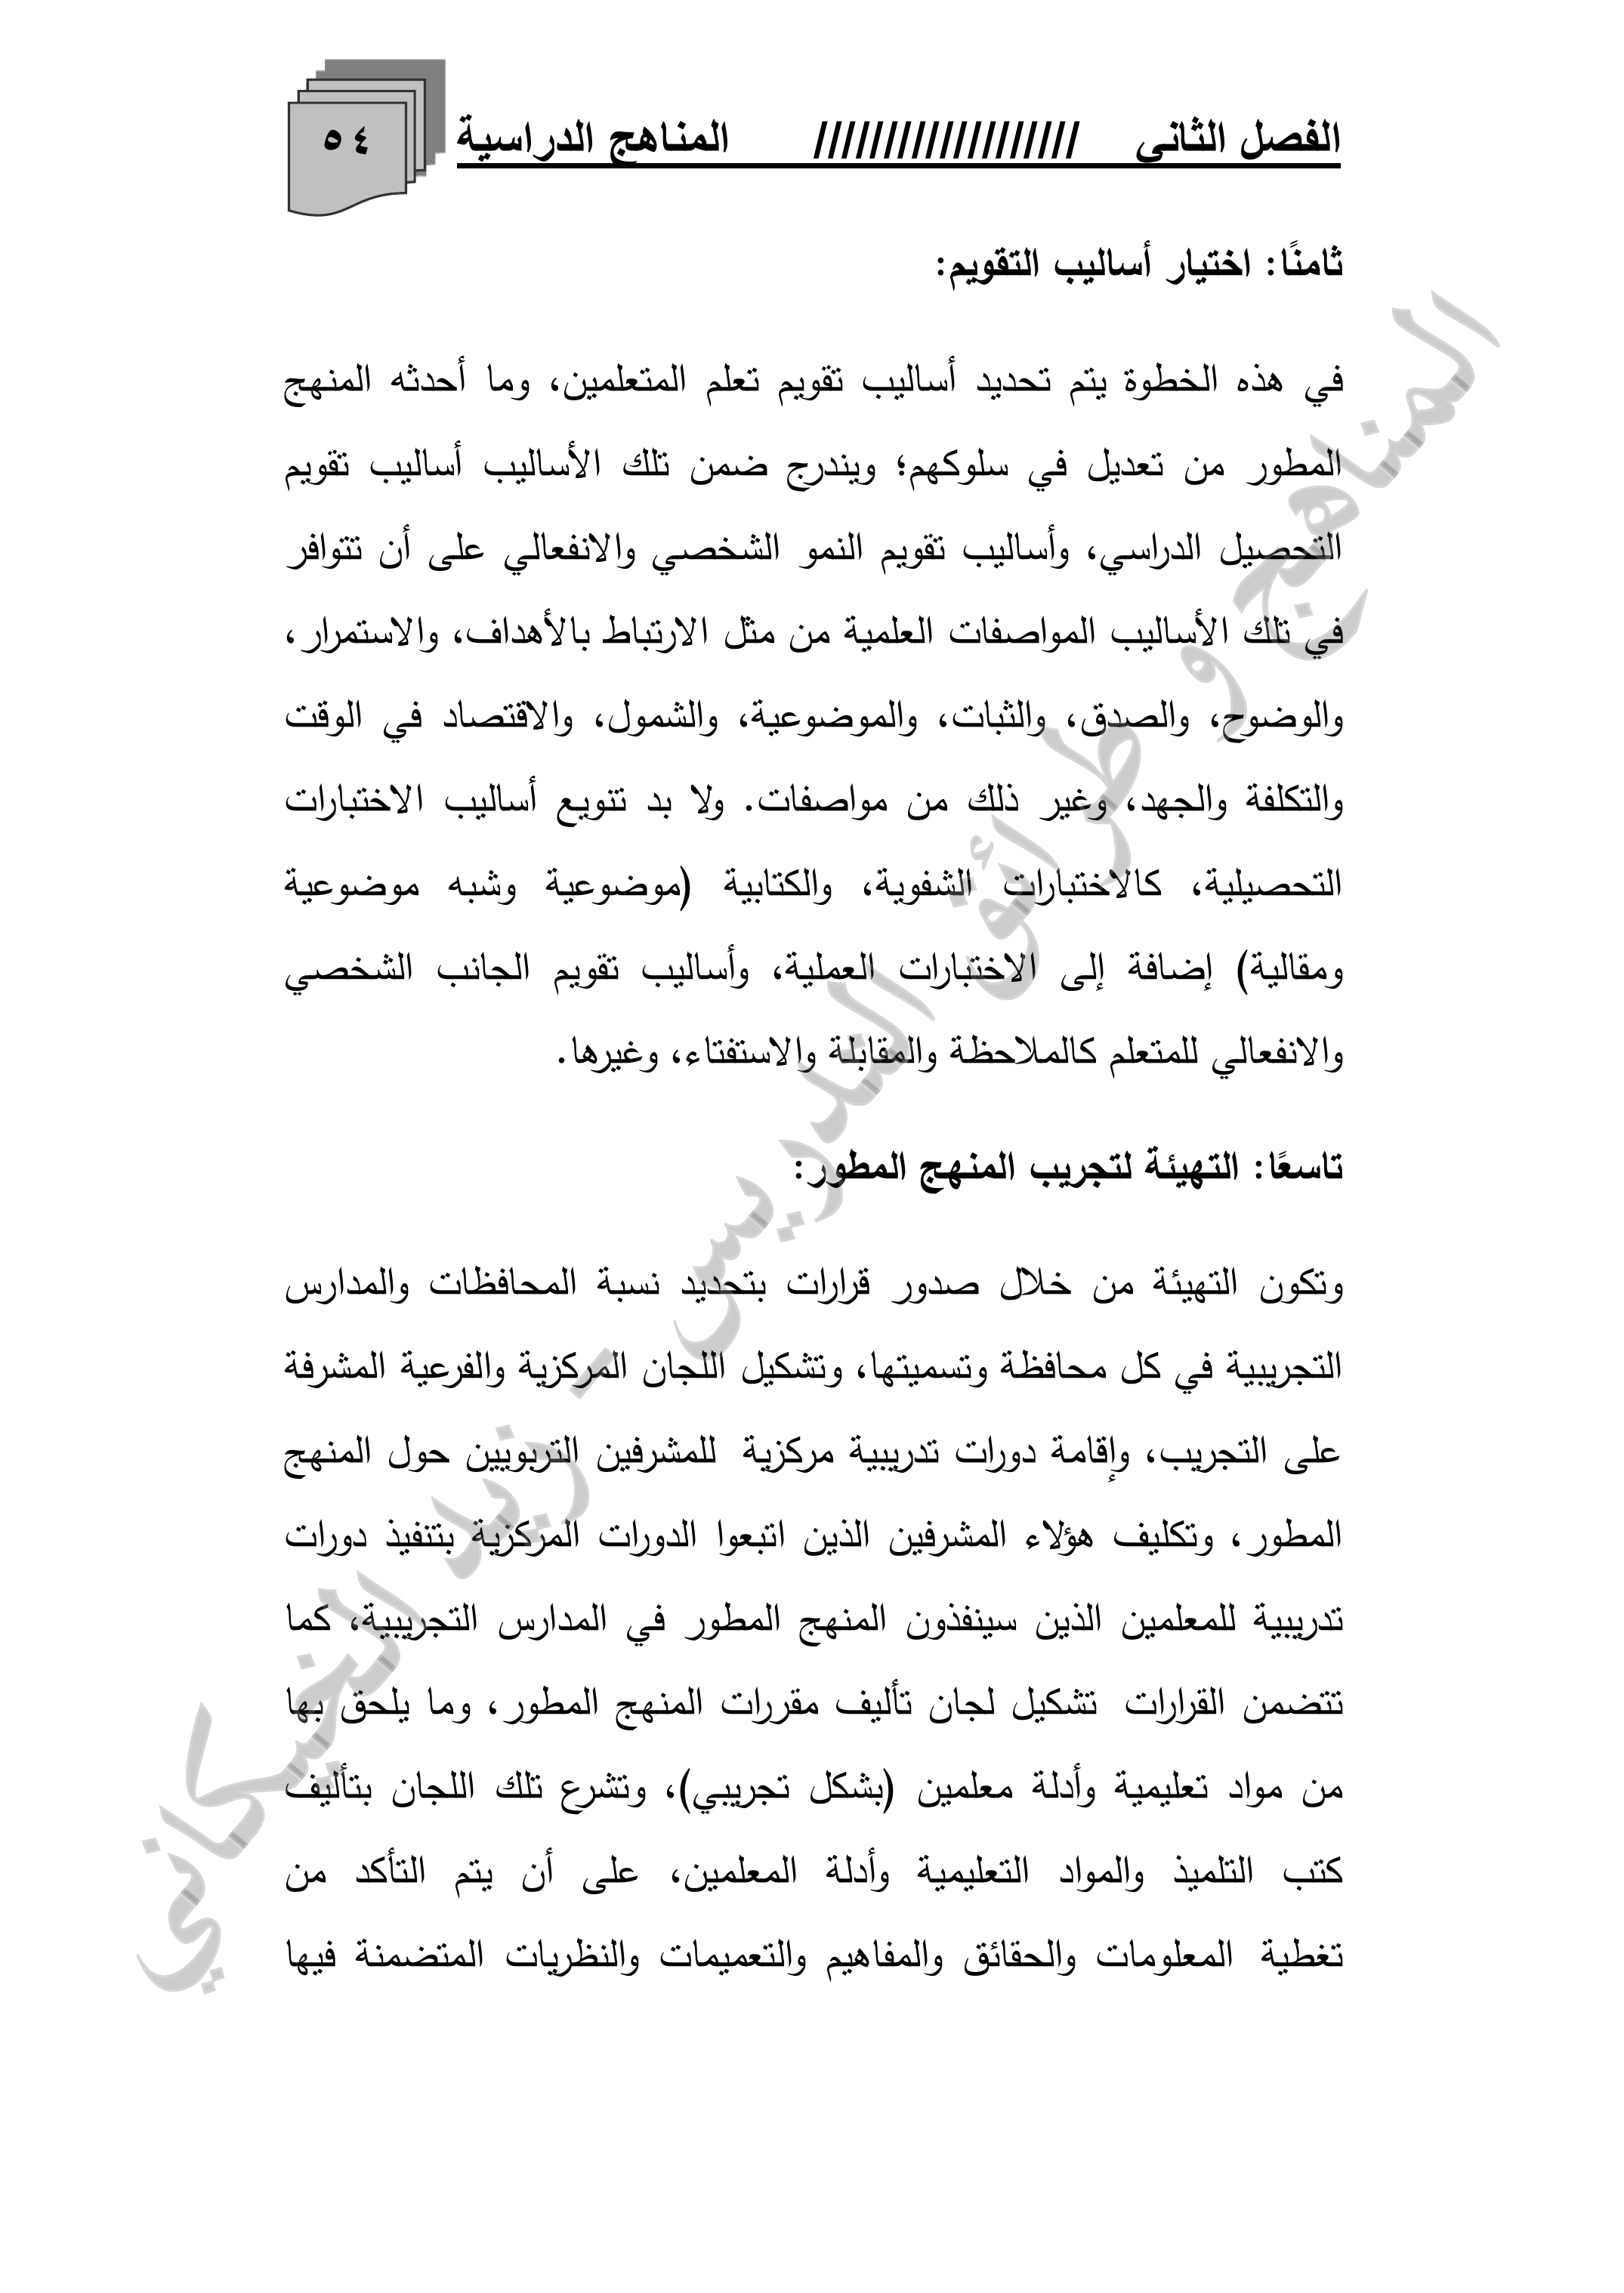 الفصل الثاني /////////////////// المناهج الدراسية ٥٤
ثامنًا: اختيار أساليب التقويم:
في هذه الخطوة يتم تحديد أساليب تقويم تعلم المتعلمين، وما أحدثه المنهج
المطور من تعديل في سلوكهم؛ ويندرج ضمن تلك الأساليب أساليب تقويم
التحصيل الدراسي، وأساليب تقويم النمو الشخصي والانفعالي على أن تتوافر
في تلك الأساليب المواصفات العلمية من مثل الارتباط بالأهداف، والاستمرار،
والوضوح، والصدق، والثبات، والموضوعية، والشمول، والاقتصاد في الوقت
والتكلفة والجهد، وغير ذلك من مواصفات. ولا بد تنويع أساليب الاختبارات
التحصيلية، كالاختبارات الشفوية، والكتابية (موضوعية وشبه موضوعية
ومقالية) إضافة إلى الاختبارات العملية، وأساليب تقويم الجانب الشخصي
والانفعالي للمتعلم كالملاحظة والمقابلة والاستفتاء، وغيرها.
تاسعًا: التهيئة لتجريب المنهج المطور:
وتكون التهيئة من خلال صدور قرارات بتحديد نسبة المحافظات والمدارس
التجريبية في كل محافظة وتسميتها، وتشكيل اللجان المركزية والفرعية المشرفة
على التجريب، وإقامة دورات تدريبية مركزية للمشرفين التربويين حول المنهج
المطور، وتكليف هؤلاء المشرفين الذين اتبعوا الدورات المركزية بتنفيذ دورات
تدريبية للمعلمين الذين سينفذون المنهج المطور في المدارس التجريبية، كما
تتضمن القرارات تشكيل لجان تأليف مقررات المنهج المطور، وما يلحق بها
من مواد تعليمية وأدلة معلمين (بشكل تجريبي)، وتشرع تلك اللجان بتأليف
كتب التلميذ والمواد التعليمية وأدلة المعلمين، على أن يتم التأكد من
تغطية المعلومات والحقائق والمفاهيم والتعميمات والنظريات المتضمنة فيها
المناهج و طرائق التدريس - زيد الخيكاني